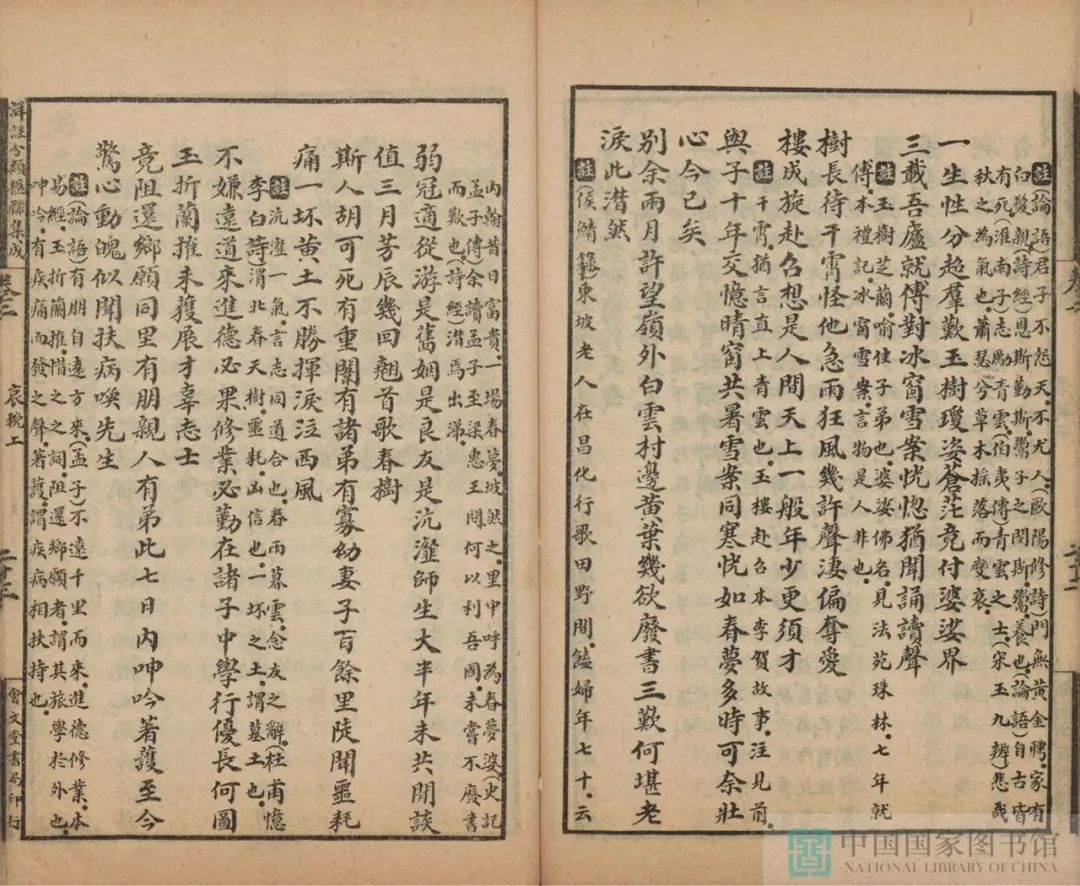 註(論語)君子不怨天。不尤人。(歐陽修詩)門無黃金聘。家有
白髮親。(詩經)恩斯勤斯。鬻子之閔斯。鬻。養也。(論語)自古皆
有死。(淮南子)志勵青雲。(伯夷傳)青雲之士。宋玉九辨)悲哉
秋之為氣也。蕭瑟兮草木搖落而變衰。
一生性分超羣歎玉樹瓊姿蒼茫竟付婆娑界
三載吾廬就傅對冰窗雪案恍惚猶聞誦讀聲
註玉樹芝蘭。喻佳子弟也。婆娑佛名。見法苑珠林。七年就
傅。本禮記。冰窗雪案。言物是人非也。
樹長待干霄怪他急雨狂風幾許聲淒偏奪愛
樓成旋赴召想是人間天上一般年少更須才
註干霄猶言直上青雲也。玉樓赴召本李賀故事。注見前。
與子十年交憶晴窗共暑雪案同寒恍如春夢多時可奈壯
心今已矣
別余兩月許望嶺外白雲村邊黃葉幾欲廢書三歎何堪老
淚此潸然
註(侯鯖錄)東坡老人在昌化行歌田野間。饁婦年七十。云
內翰昔日富貴。一場春夢。坡然之。里中呼為春夢婆。(史記
孟子傳)余讀孟子至梁惠王問何以利吾國。未嘗不廢書
而歎也。(詩經)潸焉出涕。
弱冠適從游是舊姻是良友是沆瀣師生大半年未共開談
值三月芳辰幾回翹首歌春樹
斯人胡可死有重闈有諸弟有寡幼妻子百餘里陡聞噩耗
痛一坏黃土不勝揮淚泣西風
註沆瀣一氣。言志同道合也。春雨暮雲。念友之辭。(杜甫憶
李白詩)渭北春天樹。噩耗。凶信也。一坏之土。謂墓土也。
不嫌遠道來進德必果修業必勤在諸子中學行優長何圖
玉折蘭摧未獲展才辜志士
竟阻還鄉願同里有朋親人有弟此七日內呻吟著護至今
驚心動魄似聞扶病喚先生
註(論語)有朋自遠方來。(孟子)不遠千里而來。進德修業。本
易經。玉折蘭摧。惜之之詞。阻還鄉願者。謂其旅學於外也。
呻吟。有疾痛而發之聲。著護。謂疾病相扶持也。
詳註分類楹聯集成
卷三
哀輓上
二十三
會文堂書局印行
中国国家图书馆
NATIONAL LIBRARY OF CHINA